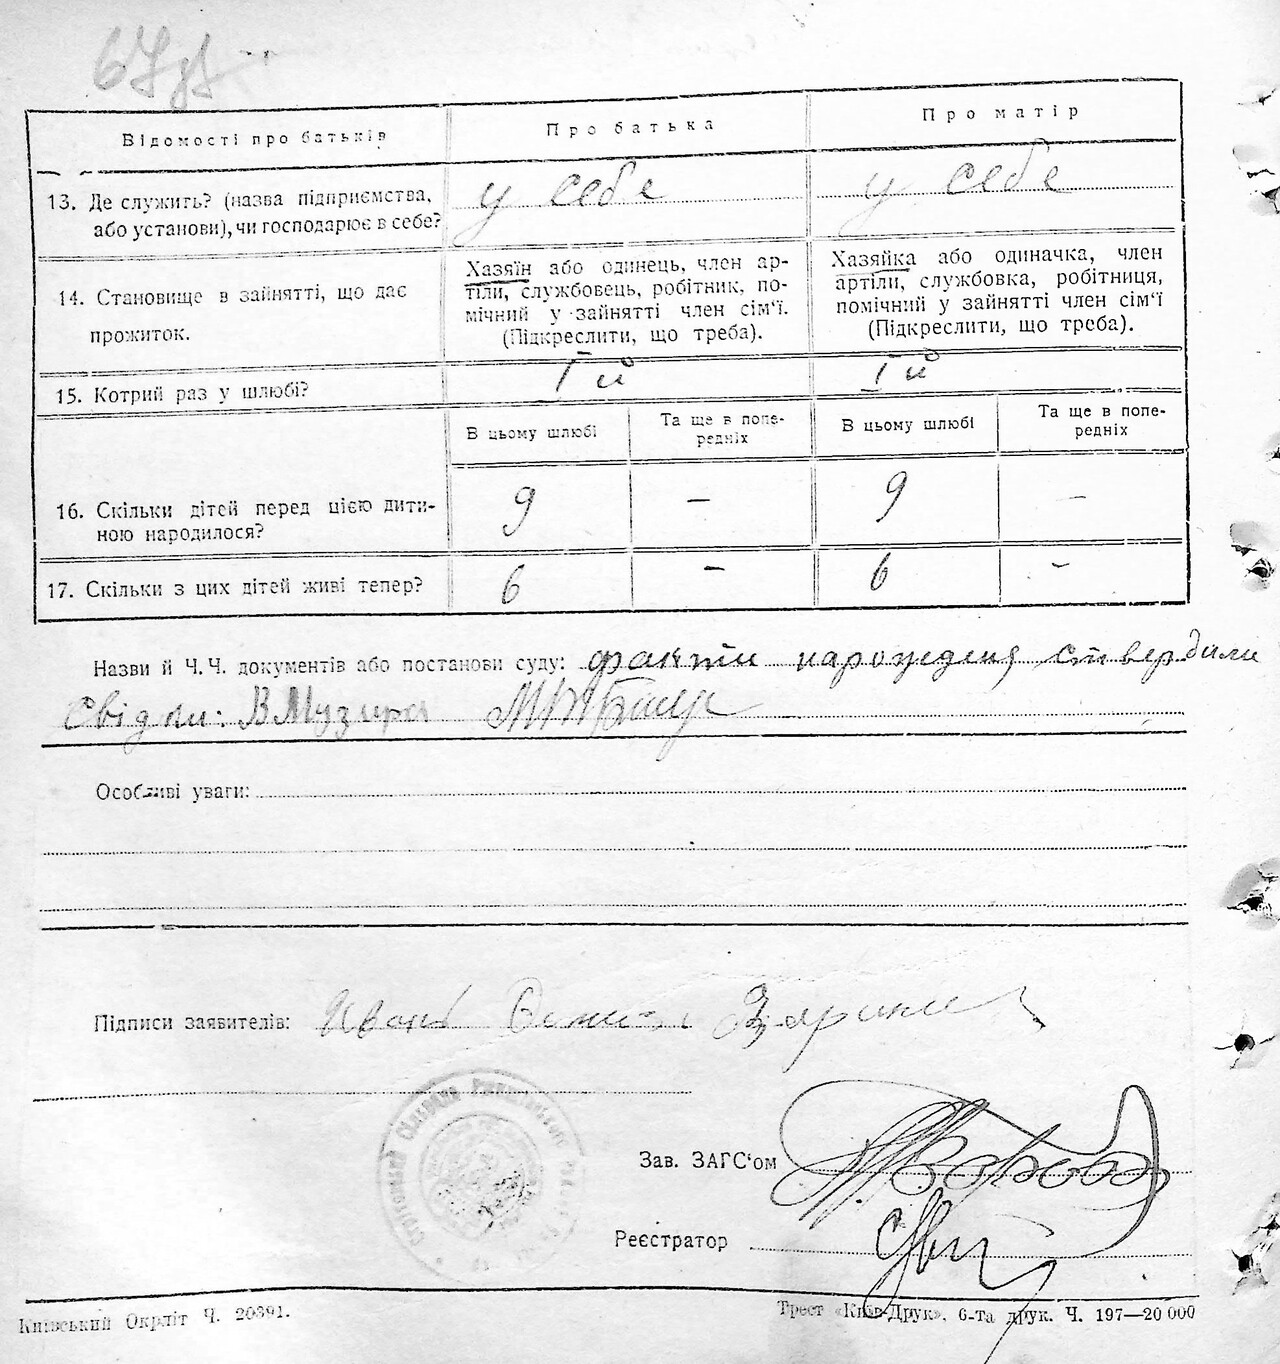 67
Відомості про батьків
Про батька
Про матір
13. Де служить? (назва підприємства,
або установи), чи господарює в себе?
у себе
у себе
14. Становище в зайнятті, що дає
прожиток.
Хазяїн або одинець, член ар-
тіли, службовець, робітник, по-
мічний у зайнятті член сім‘ї.
(Підкреслити, що треба).
Хазяйка або одиначка, член
артіли, службовка, робітниця,
помічний у зайнятті член сім‘ї
(Підкреслити, що треба).
15. Котрий раз у шлюбі?
І й
І й
В цьому шлюбі
Та ще в попе-
редніх
В цьому шлюбі
Та ще в попе-
редніх
16. Скільки дітей перед цією дити-
ною народилося?
9 – 9 –
17. Скільки з цих дітей живі тепер?
6 – 6 –
Назви й Ч.Ч. документів або постанови суду: факти народження ствердили
Свідки: В Музира
Особливі уваги:
Підписи заявителів: Иванъ
Зав. ЗАГС‘ом
Реєстратор
Київський Окрліт Ч. 20391.
Трест «Київ-Друк», 6-та друк. Ч. 197—20 000